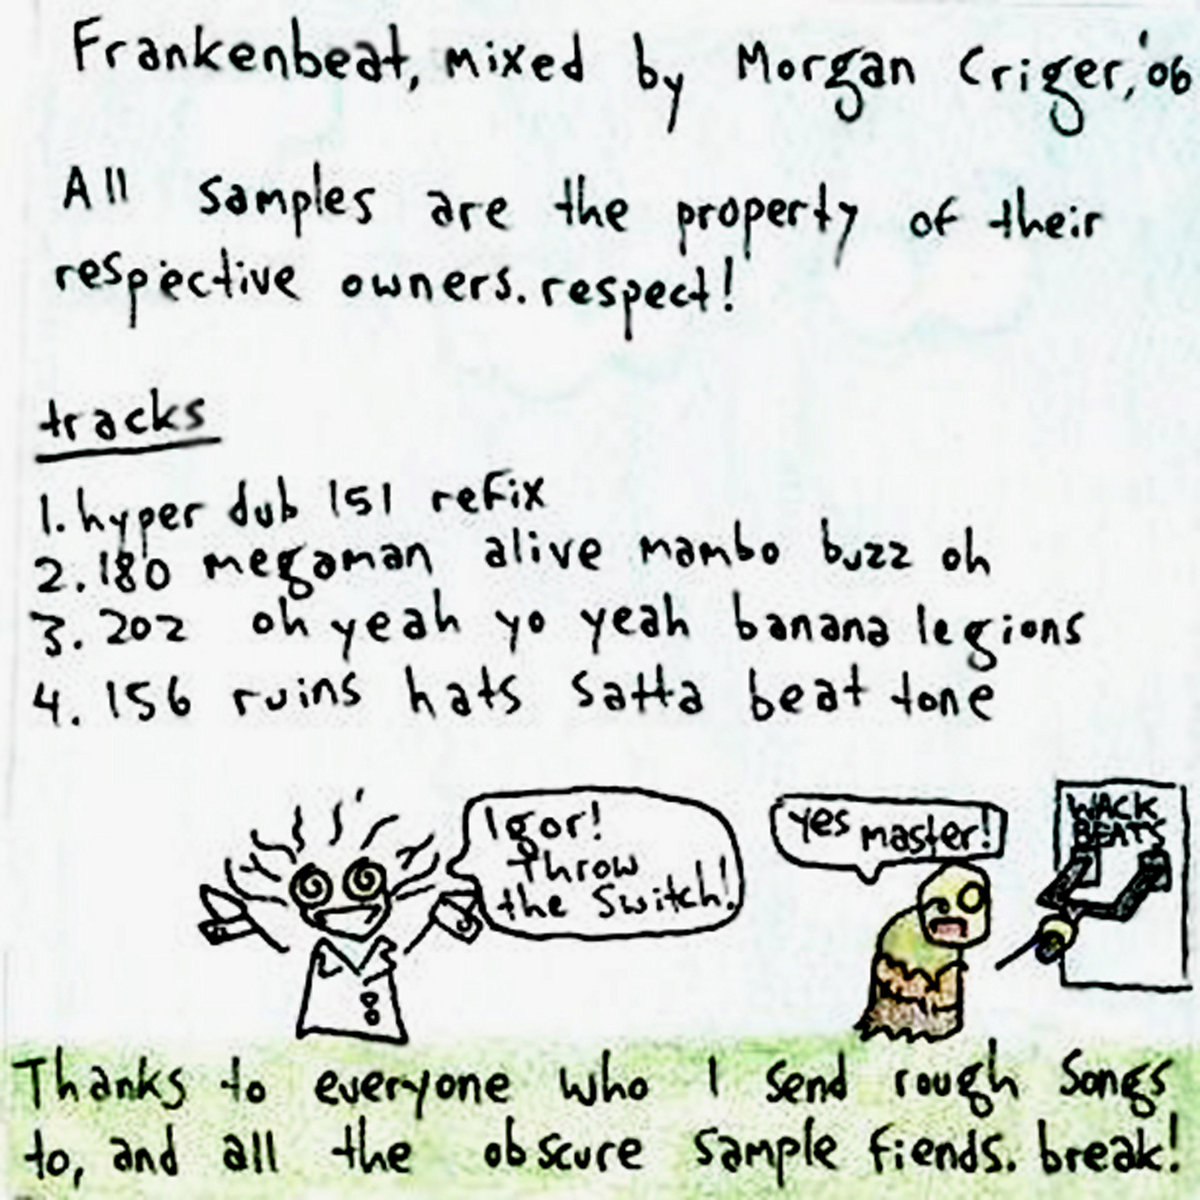 Frankenbeat, mixed by Morgan Criger, '06
All samples are the property of their
respective owners. respect!
tracks
1. hyper dub 151 refix
2. 180 megaman alive mambo buzz oh
3. 202 oh yeah yo yeah banana legions
4. 156 ruins hats satta beat tone
Igor!
Throw
the Switch!
yes master!
WACK
BEATS
Thanks to everyone who I send rough songs
to, and all the obscure sample fiends. break!